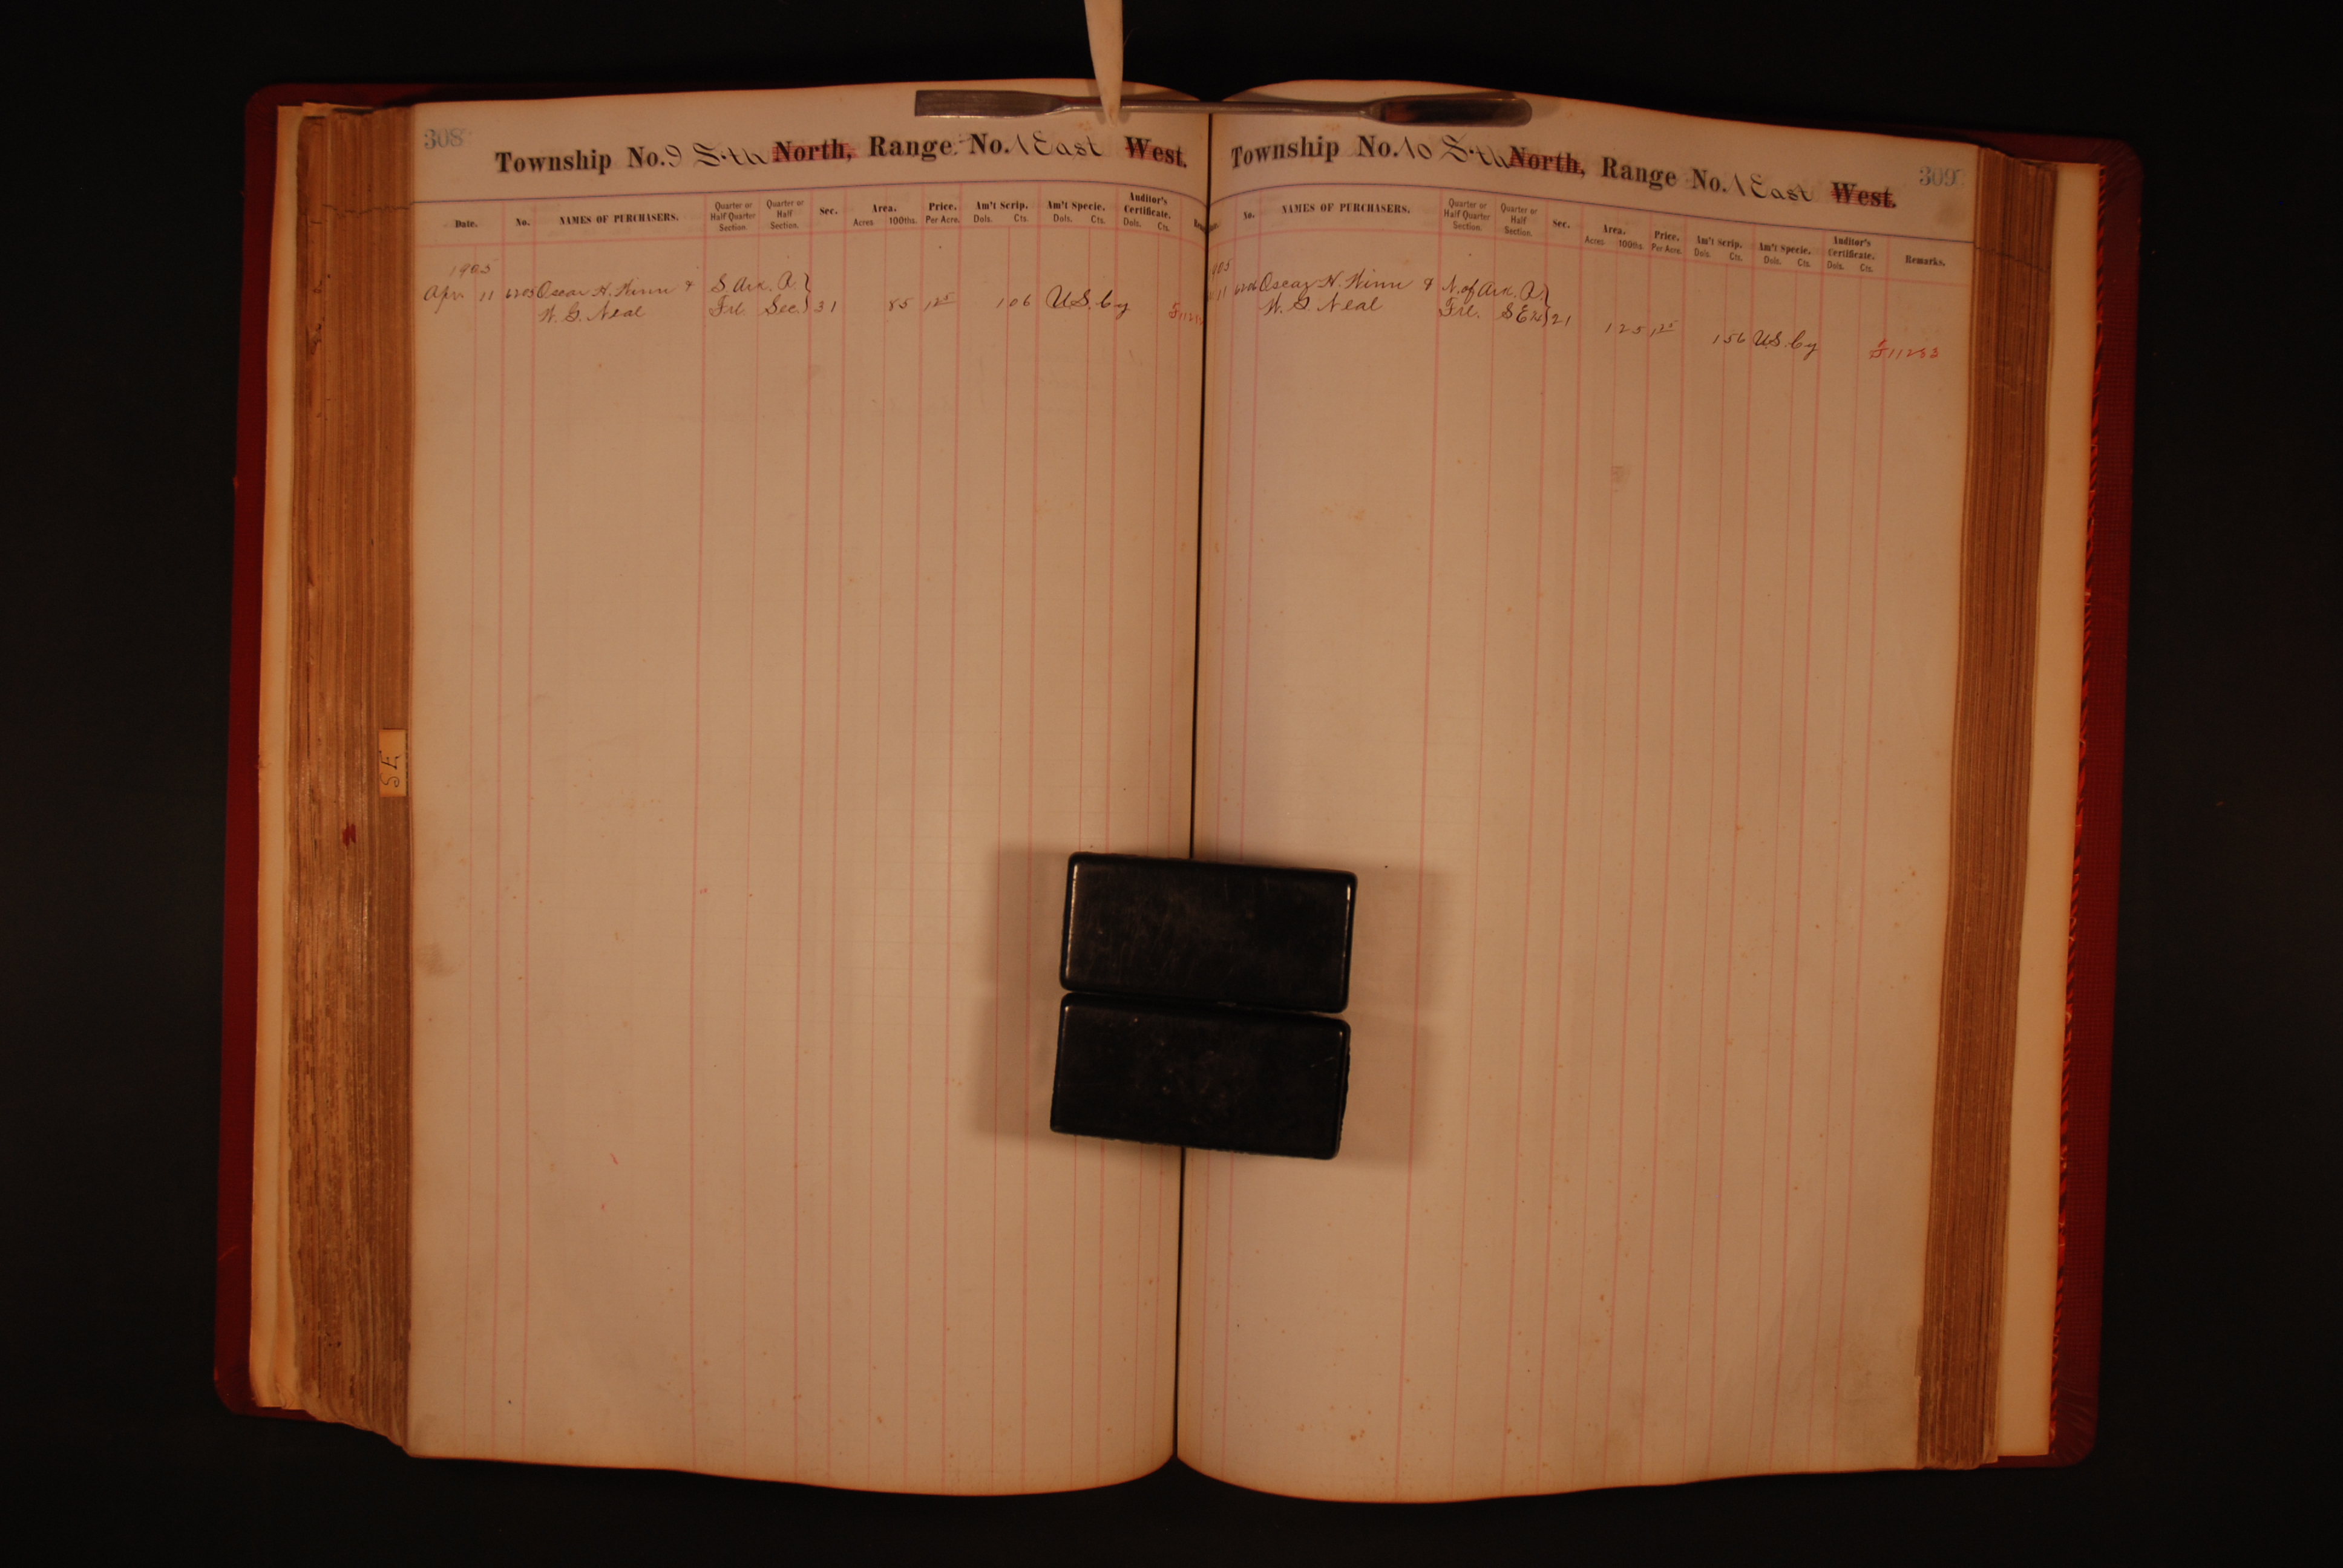 308
Township No. 9 Sth North, Range No. 1 East West.
Date. No. NAMES OF PURCHASERS. Quarter or Half Quarter Section. Quarter or Half Section. Sec. Area. Acres 100ths. Price. Per Acre. Am't Scrip. Dols. Cts. Am't Specie. Dols. Cts. Auditor's Certificate. Dols. Cts.
1905
Apr 11 6205 Oscar H. Winn & S Ark. R.
W. G. Neal Frl. Sec. 31 85 1.25 106 U.S. Cy
SE
309
Township No. 10 Sth North, Range No. 1 East West.
No. NAMES OF PURCHASERS. Quarter or Half Quarter Section. Quarter or Half Section. Sec. Area. Acres 100ths. Price. Per Acre. Am't Scrip. Dols. Cts. Am't Specie. Dols. Cts. Auditor's Certificate. Dols. Cts. Remarks.
905
11 6206 Oscar H. Winn & N. of Ark. R.
W. G. Neal Frl. SE¼ 21 125 1.25 156 U.S. Cy 11253